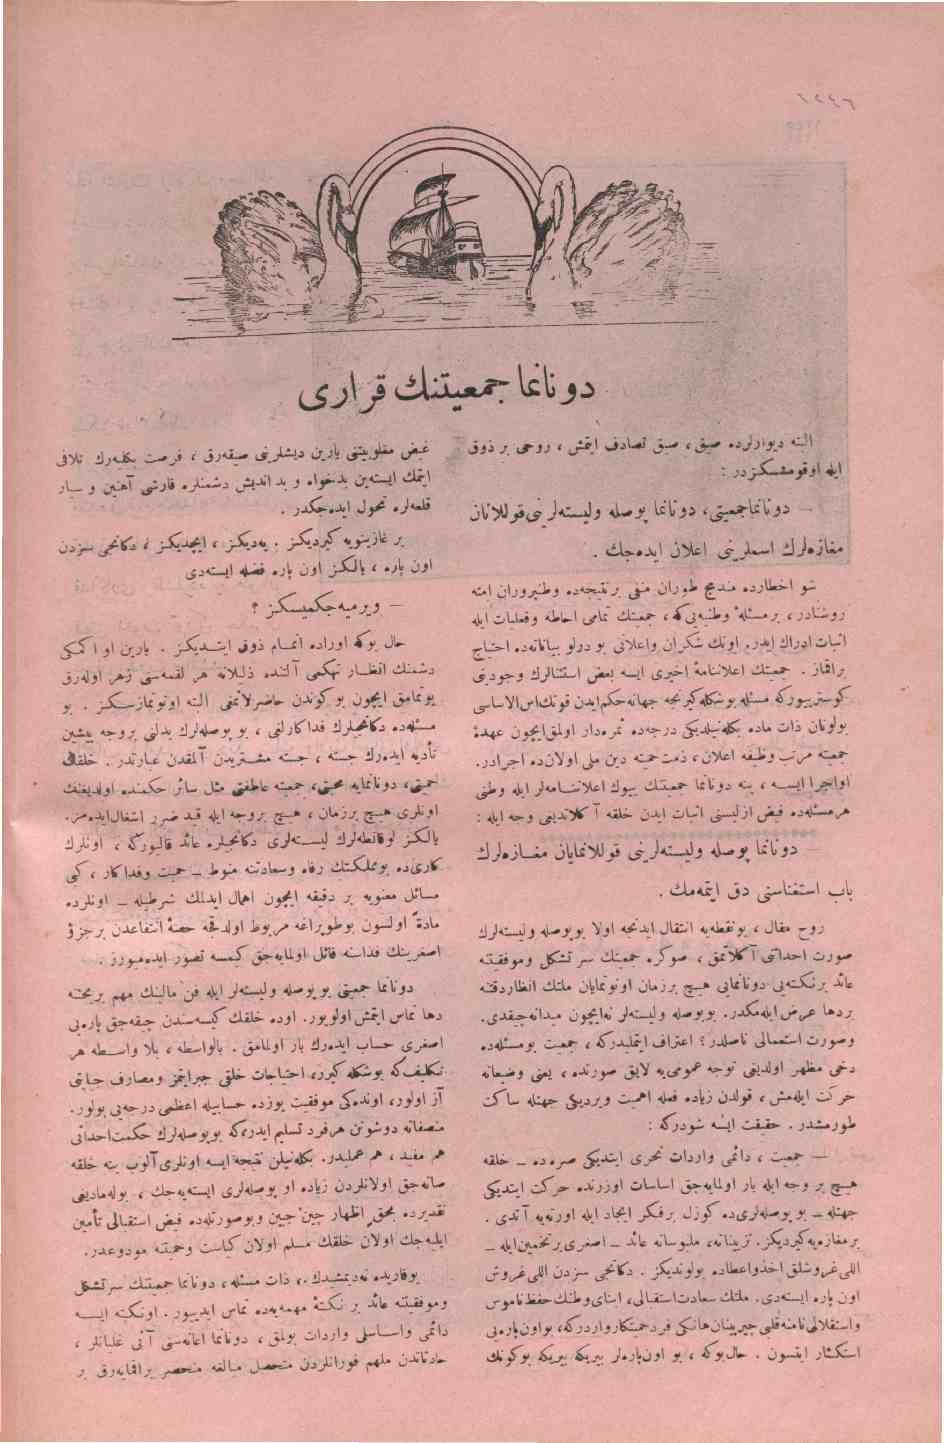 دونانما جمعیتنك قراری
البته دیوارلرده صیق ، صیق تصادف ایتمش ، روحی بر ذوق
ایله اوقومشسكزدر :
— دونانماجمعیتی، دونانما پوصله ولیسته‌لرینی قوللانان
مغازه‌لرك اسملرینی اعلان ایده‌جك .
شو اخطارده مندمج طوران منفی بر نتیجه‌ده وطنپروران امته
روشنادر، بر مسئلهٔ وطنیه‌یی‌كه ، جمعیتك تمامی احاطه وفعلیات ایله
اثبات ادراك ایدر. اونك شكران واعلانی بو درلو بیاناته‌ده احتیاج
براقماز . جمعیتك اعلاننامهٔ اخیری ایسه بعض استثنالرك وجودینی
كوستریوركه مسئله بو شكله كیرنجه جهانه حكم ایدن قوتك اس‌الاساسی
بولونان ذات ماده بكله‌نیلدیكی درجه‌ده ثمره‌دار اولمق ایچون عهدهٔ
جمعیته مرتب وظیفه اعلان ، ذمت حمیته دین ملی اولان‌ده اجرادر.
اواجرا ایسه ، ینه دونانما جمعیتك بیوك اعلاننامه‌لر ایله وطنی
هر مسئله‌ده فیض ازلیسنی اثبات ایدن خلقه آكلاندیغی وجه ایله :
— دونانما پوصله ولیسته‌لرینی قوللانمایان مغازه‌لرك
باب استغناسنی دق ایتمه‌مك .
روح مقال ، بو نقطه‌یه انتقال ایدنجه اولا بو پوصله ولیسته‌لرك
صورت احداثنی آكلاتمق ، صوكره جمعیتك سر تشكل وموفقیتنه
عائد بر نكته‌یی دونانمایی هیچ بر زمان اونوتمایان ملتك انظار دقتنه
بردها عرض ایله‌مكدر. بو پوصله ولیسته‌لر نه‌ایچون میدانه چیقدی.
وصورت استعمالی ناصلدر؟ اعتراف ایتملیدركه ، جمعیت بو مسئله‌ده
دخی مظهر اولدیغی توجه عمومی‌یه لایق صورتده ، یعنی وضیعانه
حركت ایله‌مش ، قولدن زیاده فعله اهمیت ویردیكی جهتله ساكت
طورمشدر . حقیقت ایسه شودركه :
— جمعیت ، دائمی واردات تحری ایتدیكی صره‌ده — خلقه
هیچ بر وجه ایله بار اولمایه‌جق اساسات اوزرنده حركت ایتدیكی
جهتله — بو پوصله‌لری‌ده كوزل بر فكر ایجاد ایله اورته‌یه آتدی .
بر مغازه‌یه كیردیكز. تزییناته ، ملبوساته عائد — اصغری بر تخمین ایله —
اللی غروشلق اخذ واعطاده بولوندیكز . دكانجی سزدن اللی غروش
اون پاره ایسته‌دی. ملتك سعادت استقبالی، ابنای وطنك حفظ ناموس
واستقلالی نامنه قلبی چیرپینان هانكی فرد حمیتكار واردركه، بو اون پاره‌یی
استكثار ایتسون . حال بوكه ، بو اون پاره‌لر بیریكه بیریكه بو كونك
غیض مغلوبیتنی یارین دیشلرینی صیقه‌رق ، فرصت بكلیه‌رك تلافی
ایتمك ایسته‌ین بدخواه و بد اندیش دشمنلره قارشی آهنین و سیار
قلعه‌لره تحول ایده‌جكدر .
بر غازینویه كیردیكز . یه‌دیكز ، ایچدیكز ، دكانجی سزدن
اون پاره ، یالكز اون پاره فضله ایسته‌دی
— ویرمیه‌جكمیسكز ؟
حال بوكه اوراده اتمام ذوق ایتدیكز . یارین او اكمكی
دشمنك انظار تهكمی آلتنده ذلیلانه هر لقمه‌سنی زهر اوله‌رق
یوتمامق ایچون بو كوندن حاضرلانمغی البته اونوتمازسكز . بو
مسئله‌ده دكانجیلرك فداكارلغی ، بو پوصله‌لرك بدلنی بر وجه پیشین
تأدیه ایده‌رك جسته ، جسته مشتریدن آلمقدن عبارتدر. خلقك
حمیتی، دونانمایه محبتی، جمعیته عاطفتی مثل سائر حكمنده اولدیغندن
اونلری هیچ بر زمان ، هیچ بر وجه ایله قید ضرر اشغال ایده‌مز.
یالكز لوقانطه‌لرك لیسته‌لری دكانجیلره عائد قالیوركه ، اونلرك
كاری‌ده بو مملكتك رفاه وسعادتنه منوط — حمیت وفداكار ، كبی
مسائل معنویه بر دقیقه ایچون اهمال ایدلمك شرطیله — اونلرده
مادةً اولسون بو طوپراغه مربوط اولدقجه حصهٔ انتفاعدن بر جزؤ
اصغرینك فداسنه قائل اولمایه‌جق كیمسه تصور ایده‌میورز .
دونانما جمعیتی بو پوصله ولیسته‌لر ایله فن مالینك مهم بر بحثنه
دها تماس ایتمش اولویور. اوده خلقك كیسه‌سندن چیقه‌جق پاره‌یی
اصغری حساب ایده‌رك بار اولمامق . بالواسطه ، بلا واسطه هر
تكلیف‌كه بو شكله كیرر، احتیاجات خلقی جبر ایتمز ومصارف حیاتی
آز اولور، اونده‌كی موفقیت یوزده حسابیله اعظمی درجه‌یی بولور.
منصفانه دوشونن هر فرد تسلیم ایدركه بو پوصله‌لرك حكمت احداثی
هم مفید ، هم عملیدر. بكله‌نیلن نتیجه ایسه اونلری آلوب ینه خلقه
صاته‌جق اولانلردن زیاده او پوصله‌لری ایسته‌یه‌جك ، بوله‌مادیغی
تقدیرده بحق اظهار چین جبین وبو صورتله‌ده فیض استقبالی تأمین
ایلیه‌جك اولان خلقك مسلم اولان كیاست وحمیتنه مودوعدر.
یوقاریده نه‌دیمشدك ، ذات مسئله ، دونانما جمعیتك سر تشكل
وموفقیتنه عائد بر نكتهٔ مهمه‌یه‌ده تماس ایدییور . اونكته ایسه
دائمی واساسلی واردات بولمق ، دونانما اعانه‌سنی آنی غلیانلر ،
حادثاتدن ملهم فوراتلردن متحصل مبالغه منحصر براقمایه‌رق بر